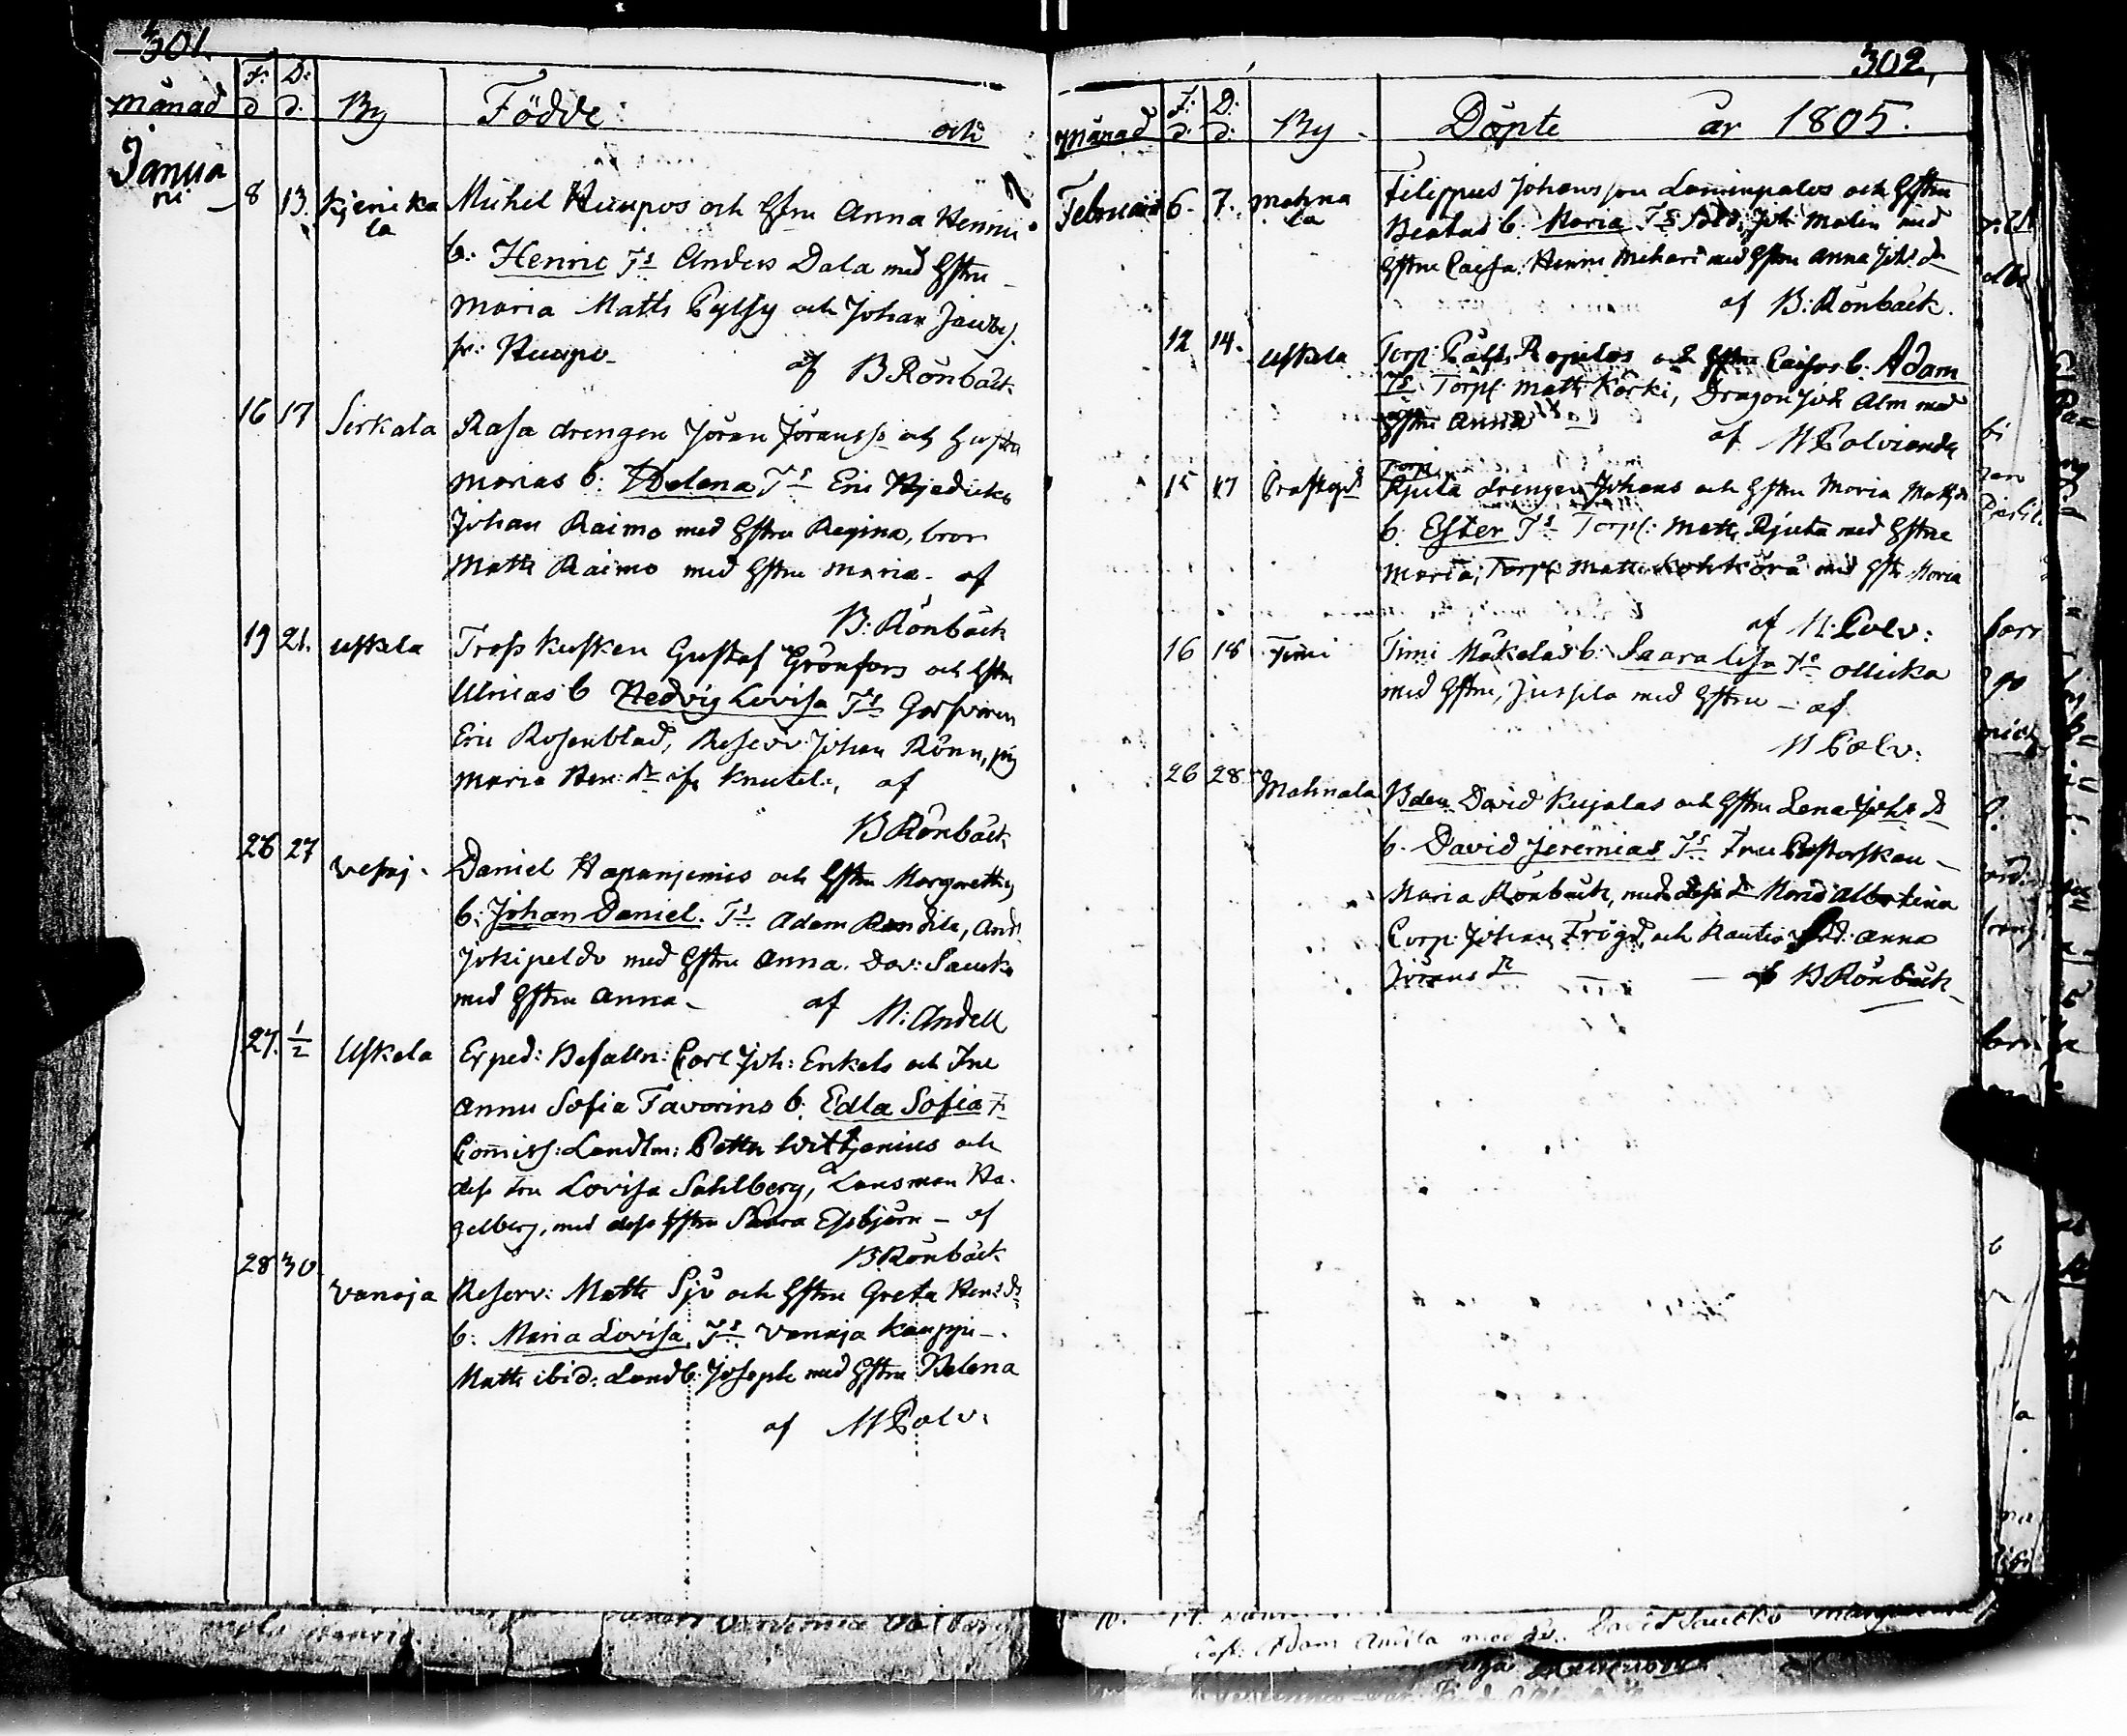 301.
månad F: d D: d. By Födde och
Janua
ri
8 13. Kjerika
la
Michel Huupos och hstru Anna Henric
b: Henric Ts Anders Dala med hstru
Maria Matts Pylsy och Johan Jacobs
Huupo
af B Rönbäck
16 17 Sirkala Rasa drengen Jöran Jöranss och hustru
Marias b: Helena Ts Eric Hjedicko
Johan Raimo med hstru Regina, bror
Matts Raimo med hstru Maria. af
B: Rönbäck
19 21. Uskela Tross kusken Gustaf Grönfors och hstru
Ulricas b Hedvig Lovisa Ts Garfvaren
Eric Rosenblad, Reserv Johan Rönn, pig
Maria Hen: dr Knutil:, af
B Rönbäck
26 27 Vesaj. Daniel Hapanjemis och hstru Margarethas
b: Johan Daniel. Ts Adam Rendile, And:
Jokipeldo med hstru Anna. Dav: Saucko
med hstru Anna af M: Andell
27. 1/2 Uskela Exped: Befalln: Carl Joh: Enkels och Fru
Anna Sofia Favorins b: Edla Sofia T
Comiss: Landtm: Petter Wittjenius och
dess fru Lovisa Sahlberg, Lansman Ha-
gelberg, med dess hstru Saara Essbjörn - af
B. Rönbäck
28 30. Vanaja Reserv: Matts Sjö och hstru Greta Hens dr
b: Maria Lovisa, Ts Vanaja Kauppi
Matts ibid: Landb: Joseph med hstru Helena
af M Polv:
302,
månad F: d. D: d: By Döpte år 1805.
Februarii 6. 7. Mahna
la
Filippus Johans son Laminpalos och hstru
Beatas b: Maria Ts Sold: Joh Malin med
hstru Caisa. Henric Mickari med hstru Anna Johs dr
af B: Rönbäck.
12 14. Uskela Torp: Påhls Ropilos och hstru Caisas b: Adam
Ts Torp: Matts Körki, Dragon Joh Alm med
hstru Anna
af M Polviander
15 17 Prästgd Torp:
Rjuta drengen Johans och hstru Maria Matts dr
b. Ester Ts Torp: Matts Rjuta med hstru
Maria, Torp: Matts Kohtörä med hstr Maria
af M: Polv:
16 18 Timi Timi Mäkeläs b: Saara Lisa Ts Ollicka
med hstru, Jussila med hstru - af
M Polv:
26 28 Mahnala Bden David Kujalas och hstru Lena Johs dr
b. David Jeremias Ts Fru Pastorskan
Maria Rönbäck, med dess dr Maria Albertina
Corp: Johan Frögd, och Rautio Anna
Jörans dr af B Rönbäck
Adam Anttila med David Saucko